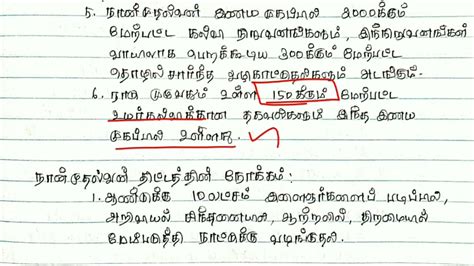 5. நான் முதல்வன் இணைய முகப்பில் 2000க்கும்
மேற்பட்ட கல்வி நிறுவனங்களும், இந்நிறுவனங்கள்
வாயிலாக பெறக்கூடிய 300க்கும் மேற்பட்ட
தொழில் சார்ந்த வழிகாட்டுதல்களும் அடங்கும்.
6. நாடு முழுவதும் உள்ள 150க்கும் மேற்பட்ட
உயர்கல்விக்கான தகவல்களும் இந்த இணைய
முகப்பில் உள்ளது.
நான்முதல்வன் திட்டத்தின் நோக்கம்:
1. ஆண்டுக்கு 10 லட்சம் இளைஞர்களைப் படிப்பில்,
அறிவியல் சிந்தனையில், ஆற்றலில், திறமையில்
மேம்படுத்தி நாட்டுக்கு வழங்குதல்.